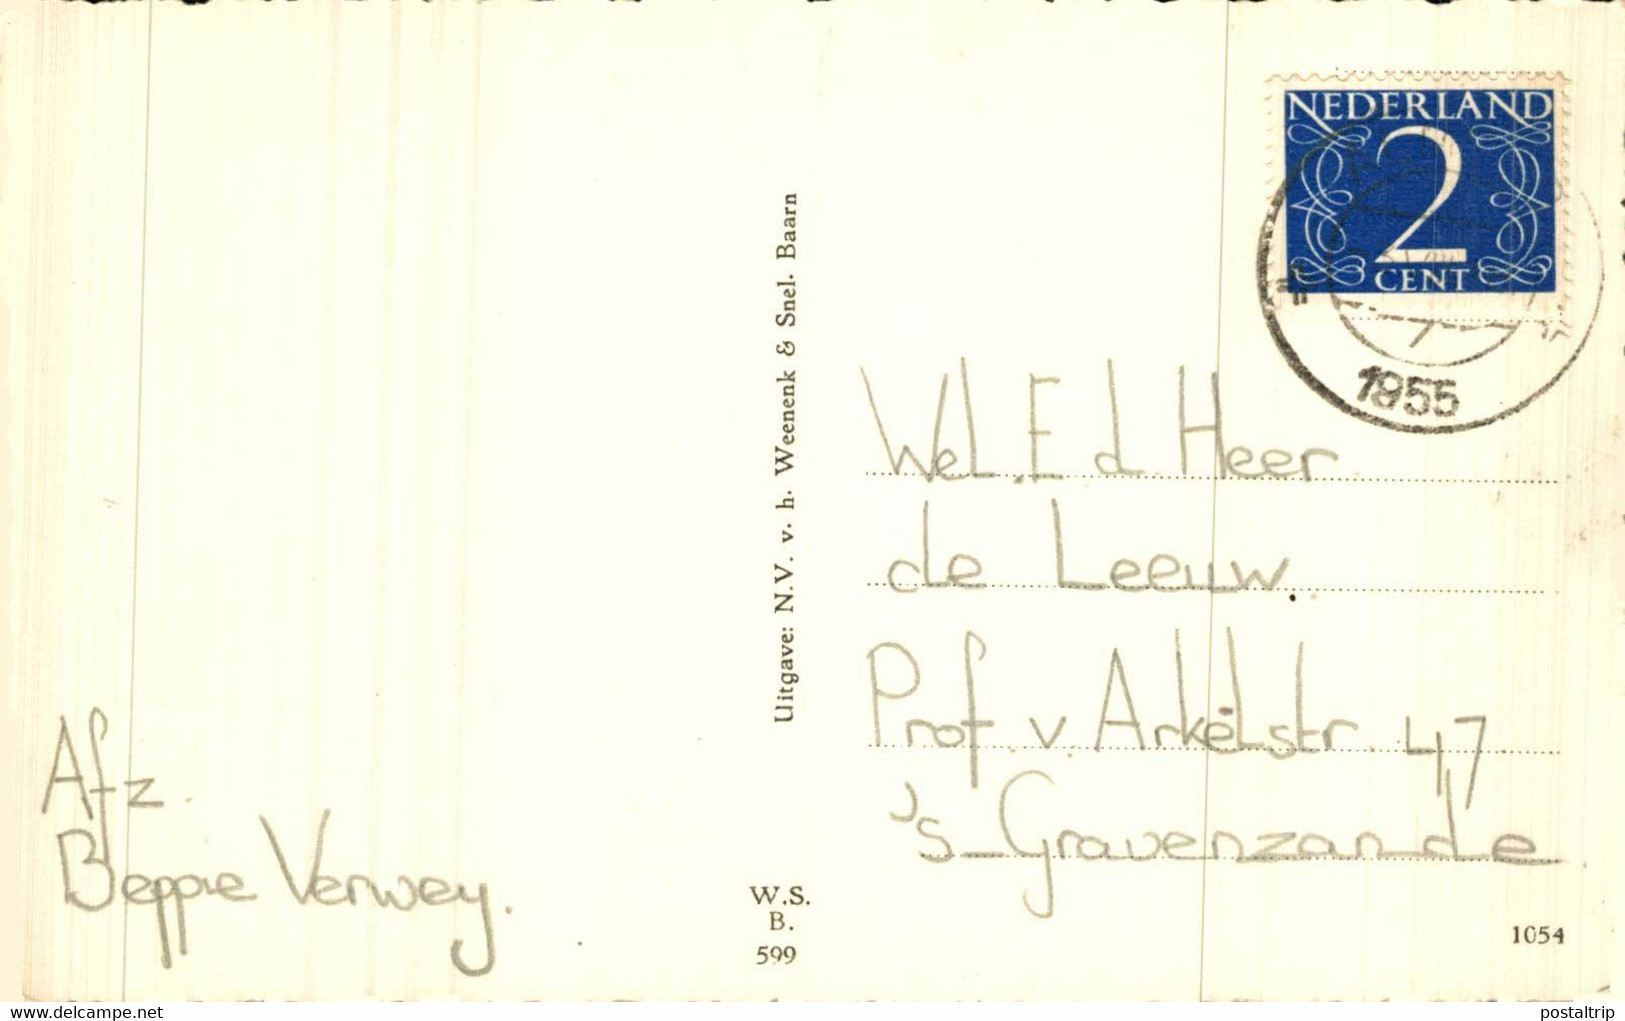 NEDERLAND
2
CENT
1955
Uitgave: N.V. v. h. Weenenk & Snel. Baarn
Wel. E d. Heer
de Leeuw.
Prof. v. Arkelstr. 47
's-Gravenzande
Afz.
Beppie Verwey.
W.S.
B.
599
1054
delcampe.net
postaltrip